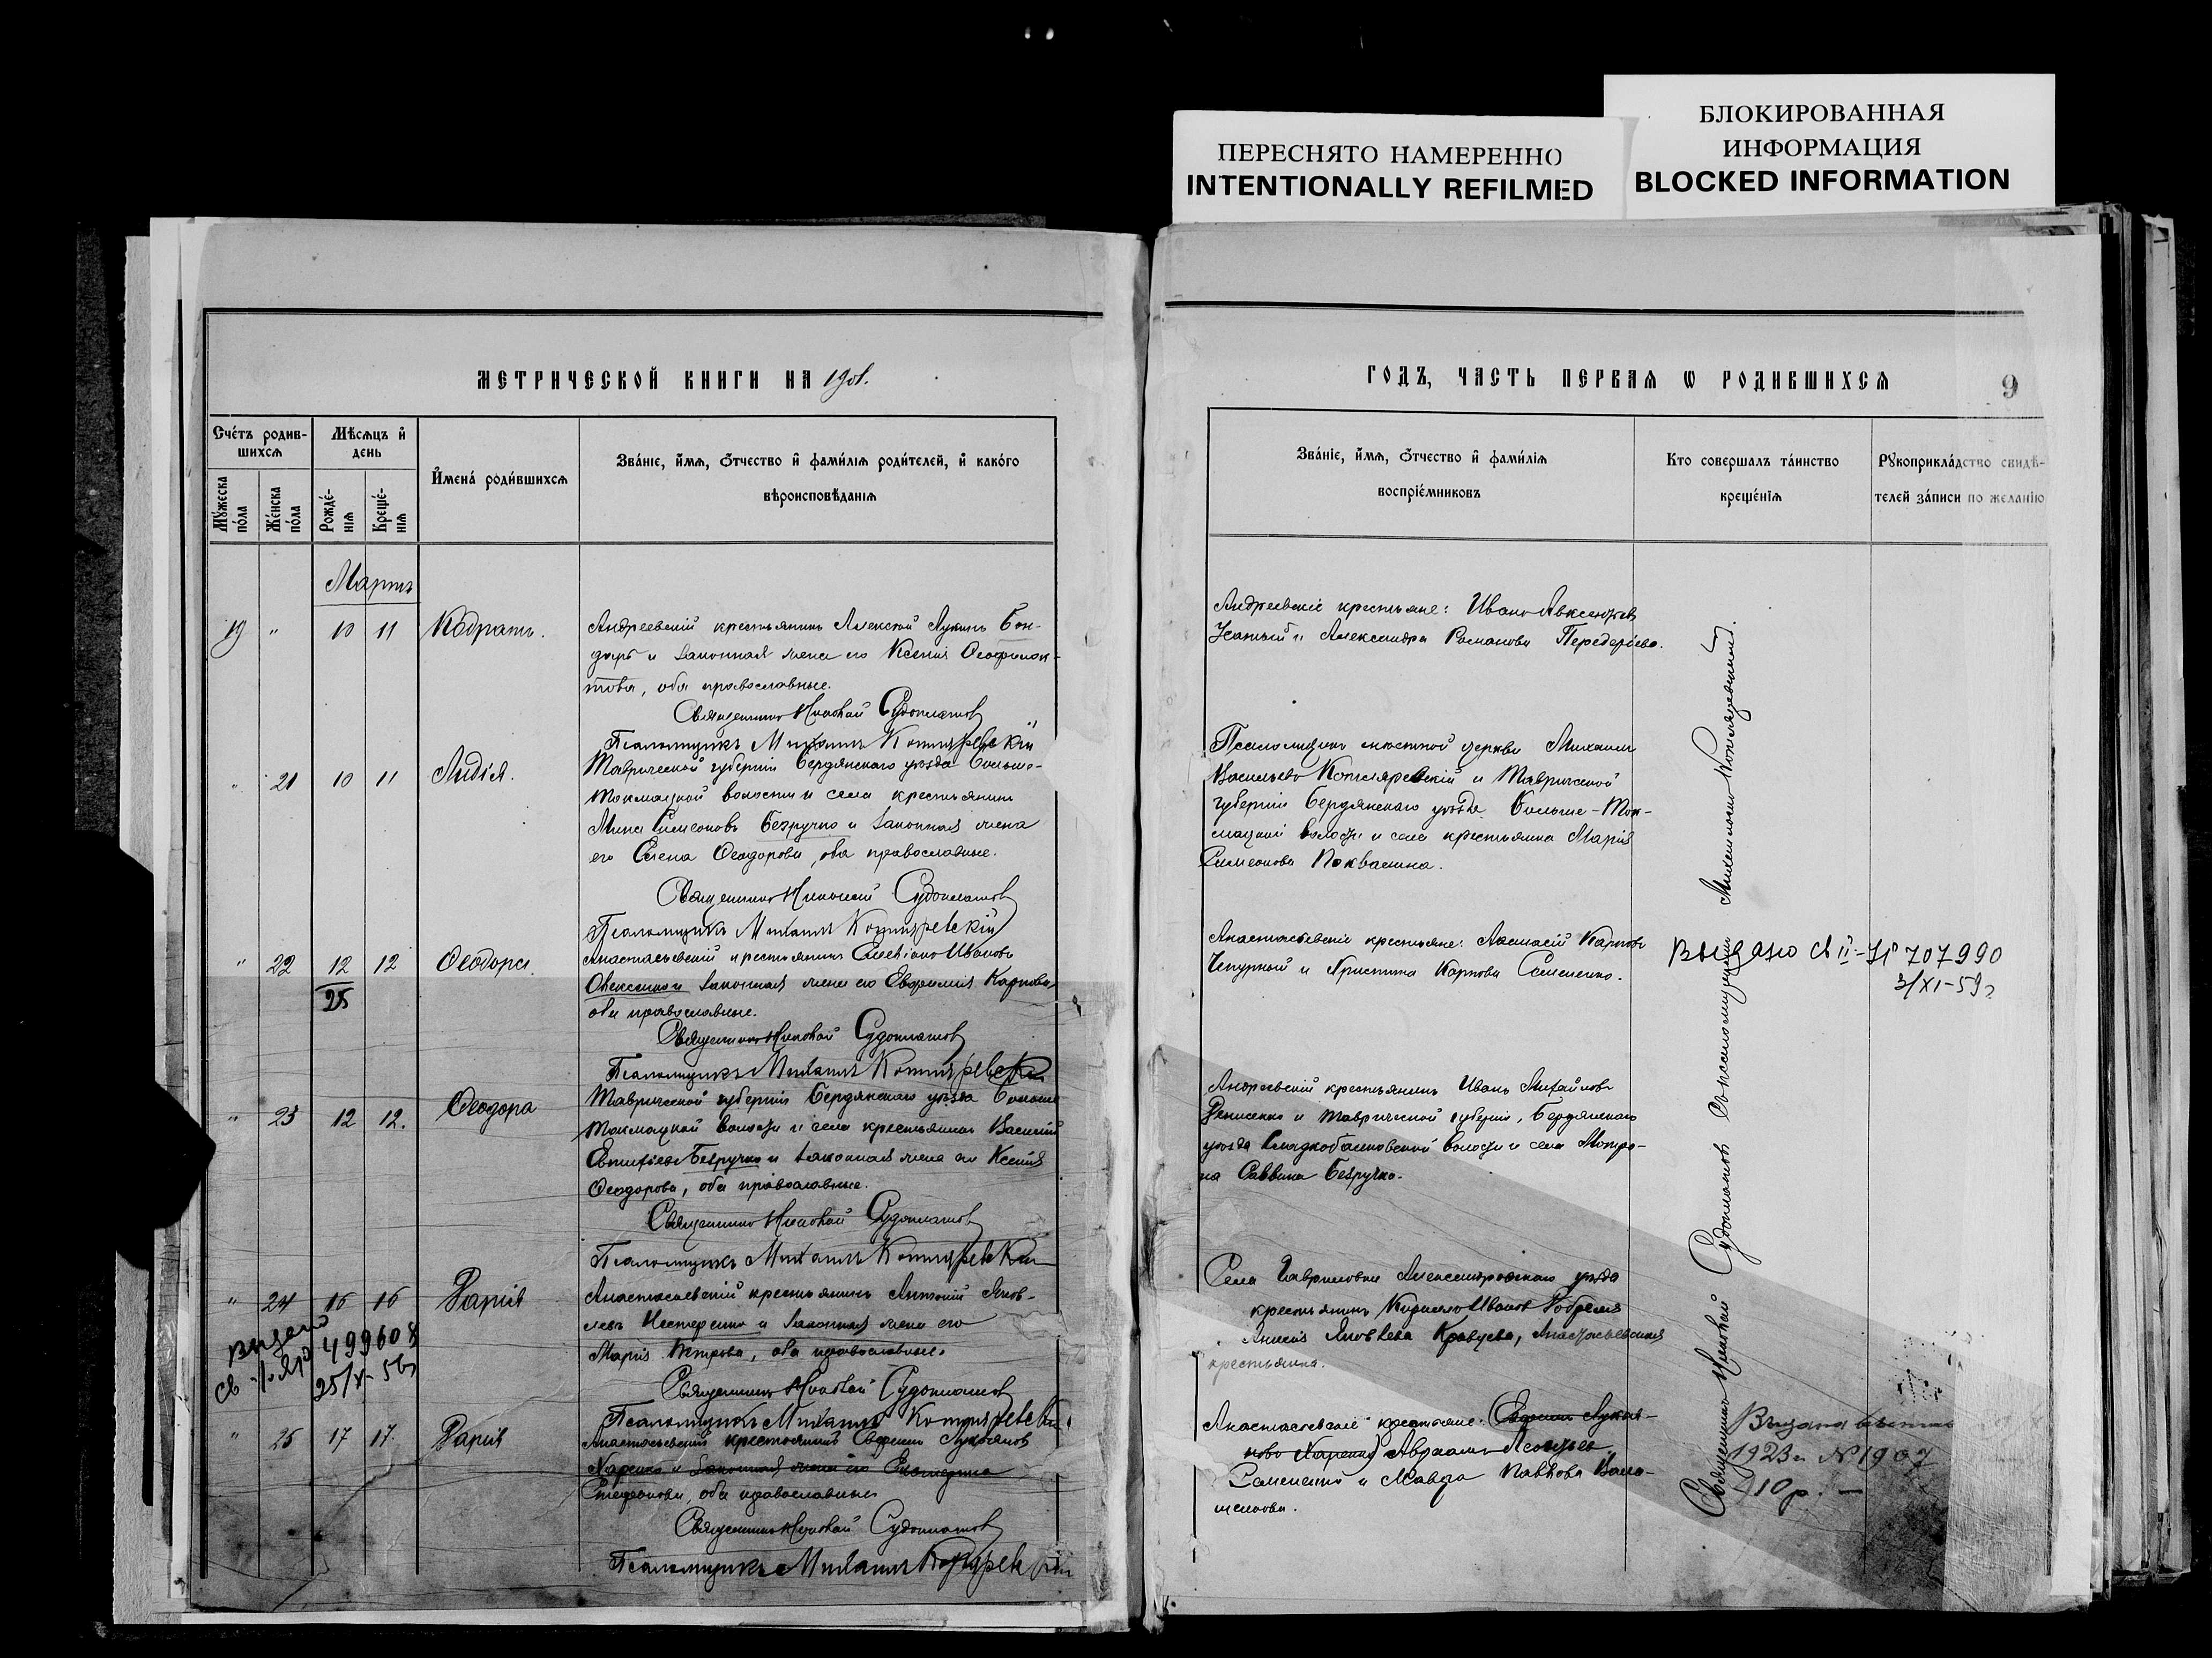 ПЕРЕСНЯТО НАМЕРЕННО
INTENTIONALLY REFILMED
БЛОКИРОВАННАЯ
ИНФОРМАЦИЯ
BLOCKED INFORMATION
МЕТРИЧЕСКОЙ КНИГИ НА 1901.
Счетъ родив-
шихся
Мѣсяцъ и
день
Мужеска
пола
Женска
пола
Рожде-
нія
Креще-
нія
Имена родившихся
Званіе, имя, отчество и фамилія родителей, и какого
вѣроисповѣданія
Мартъ
19 " 10 11 Кодратъ.
Андреевскій крестьянинъ Алексѣй Лукинъ Бон-
дарь и законная жена его Ксенія Ѳеофилак-
това, оба православные.
Священникъ Николай Судоплатовъ
Псаломщикъ Михаилъ Котляревскій
" 21 10 11 Лидія.
Таврической губерніи Бердянскаго уѣзда Больше-
Токмацкой волости и села крестьянинъ
Мина Симеоновъ Безручко и законная жена
его Елена Ѳеодорова, оба православные.
Священникъ Николай Судоплатовъ
Псаломщикъ Михаилъ Котляревскій
" 22 12 12 Ѳеодора.
25
Анастасьевскій крестьянинъ Ивановъ
Алексенко и законная жена его Евфимія Карпова
оба православные.
Священникъ Николай Судоплатовъ
Псаломщикъ Михаилъ Котляревскій
" 23 12 12. Ѳеодора
Таврической губерніи Бердянскаго уѣзда Больше
Токмацкой волости и села крестьянинъ Василій
Безручко и законная жена его Ксенія
Ѳеодорова, оба православные.
Священникъ Николай Судоплатовъ
Псаломщикъ Михаилъ Котляревскій
" 24 16 16 Дарія
Анастасьевскій крестьянинъ Антоній Яков-
левъ Нестеренко и законная жена его
Марія Петрова, оба православные.
Выдано
499608
25/XI-56г
Священникъ Николай Судоплатовъ
Псаломщикъ Михаилъ Котляревскій
" 25 17 17. Дарія
Анастасьевскій крестьянинъ Евфимъ Лукьяновъ
Харенко и законная жена его Екатерина
Стефанова, оба православные
Священникъ Николай Судоплатовъ
Псаломщикъ Михаилъ Котляревскій
ГОДЪ, ЧАСТЬ ПЕРВАЯ Ѡ РОДИВШИХСЯ
9
Званіе, имя, отчество и фамилія
воспріемниковъ
Кто совершалъ таинство
крещенія
Рукоприкладство свидѣ-
телей записи по желанію
Андреевскіе крестьяне: Иванъ Авксентьевъ
и Александра Романова Передеріева.
Псаломщикъ мѣстной церкви Михаилъ
Васильевъ Котляревскій и Таврической
губерніи Бердянскаго уѣзда Больше-Ток-
мацкой волости и села крестьянка Марія
Симеонова Поквасина.
Анастасьевскіе крестьяне: Аѳанасій Карповъ
Чепурный и Христина Карпова Семененко.
Выдано св II-ЯР 707990
3/XI-59г
Андреевскій крестьянинъ Иванъ Михайловъ
Денисенко и Таврической губерніи, Бердянскаго
уѣзда Сладкобалковской волости и села Матро-
на Саввина Безручко.
Села Гавриловки Александровскаго уѣзда
крестьянинъ Кириллъ Ивановъ
Яковлева Кравцева, Анастасьевская
крестьянка.
Анастасьевскіе крестьяне: Евфимъ Лукья-
новъ Харенко Авраамъ
Семененко и Мавра Павлова
Священникъ Николай Судоплатовъ съ псаломщикомъ Михаиломъ Котляревскимъ.
Выдана
1923г. № 1907
10р. —